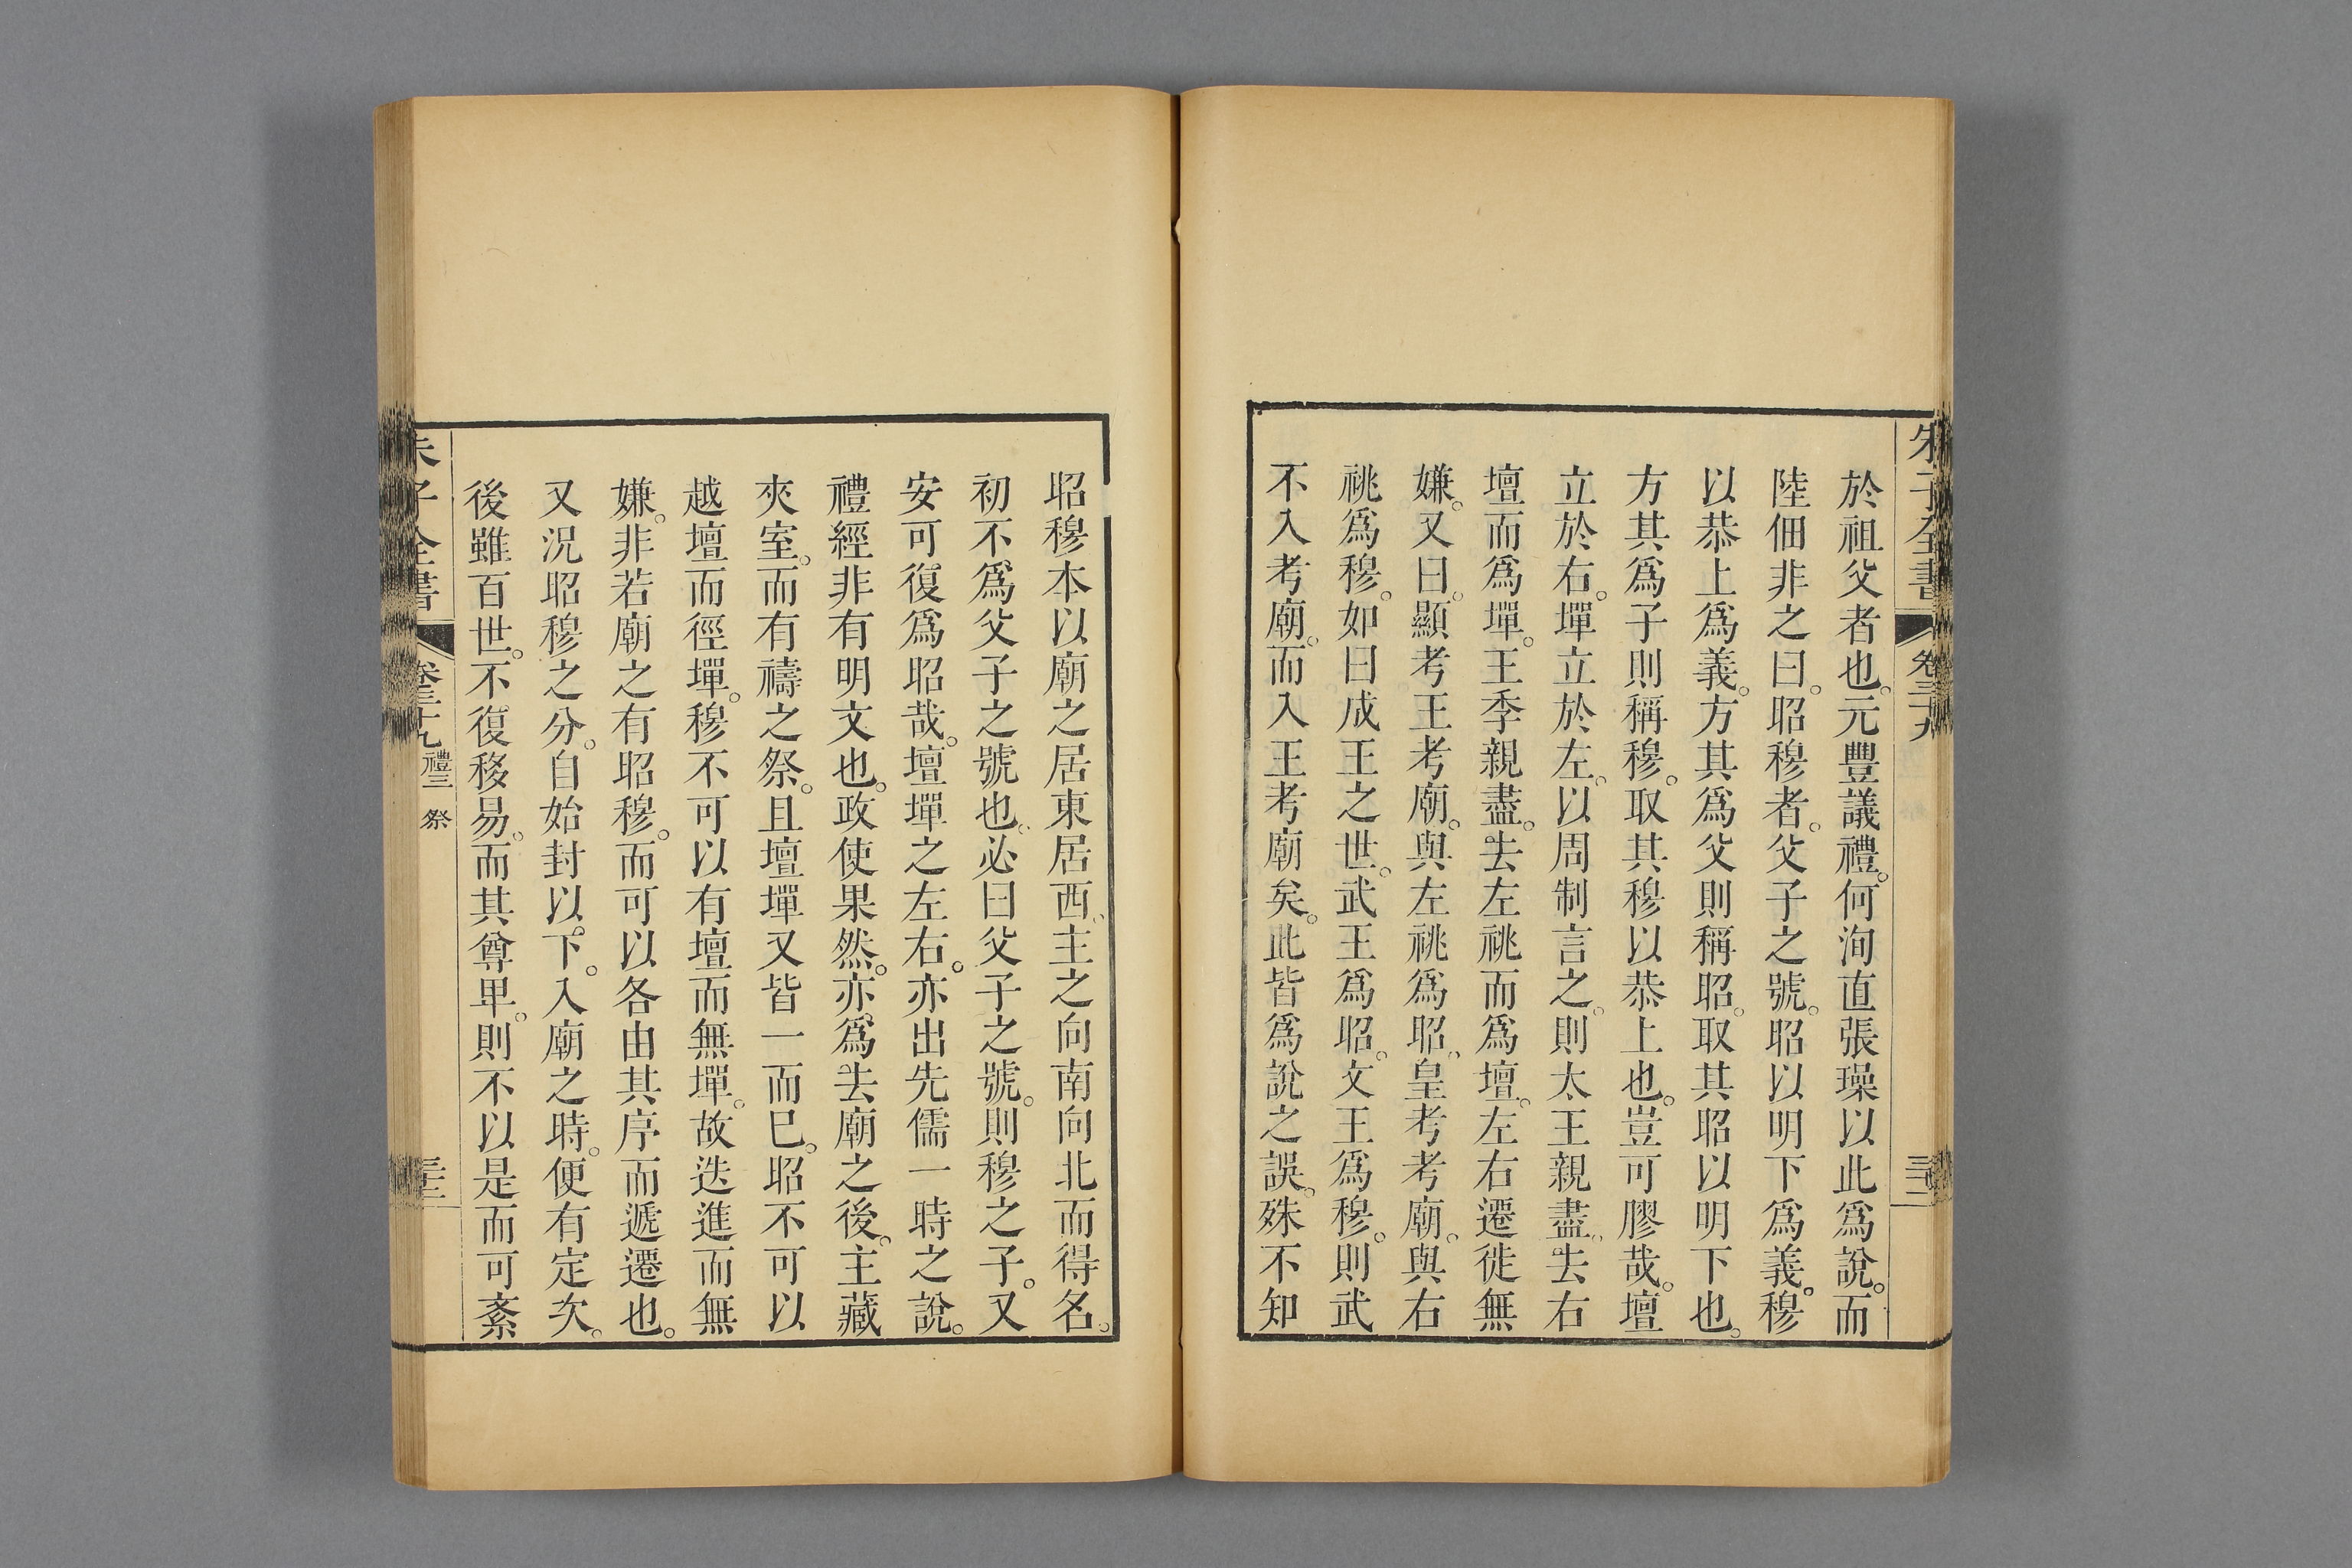 朱子全書 卷三十九
於祖父者也。元豐議禮。何洵直張璪以此爲說。而
陸佃非之曰。昭穆者。父子之號。昭以明下爲義。穆
以恭上爲義。方其爲父則稱昭。取其昭以明下也。
方其爲子則稱穆。取其穆以恭上也。豈可膠哉。壇
立於右。墠立於左。以周制言之。則太王親盡。去右
壇而爲墠。王季親盡。去左祧而爲壇。左右遷徙無
嫌。又曰。顯考王考廟。與左祧爲昭。皇考考廟。與右
祧爲穆。如曰成王之世。武王爲昭。文王爲穆。則武
不入考廟。而入王考廟矣。此皆爲說之誤。殊不知
昭穆本以廟之居東居西。主之向南向北而得名。
初不爲父子之號也。必曰父子之號。則穆之子。又
安可復爲昭哉。壇墠之左右。亦出先儒一時之說。
禮經非有明文也。政使果然。亦爲去廟之後。主藏
夾室。而有禱之祭。且壇墠又皆一而已。昭不可以
越壇而徑墠。穆不可以有壇而無墠。故迭進而無
嫌。非若廟之有昭穆。而可以各由其序而遞遷也。
又況昭穆之分。自始封以下。入廟之時。便有定次。
後雖百世。不復移易。而其尊卑。則不以是而可紊
朱子全書 卷三十九 禮三 祭